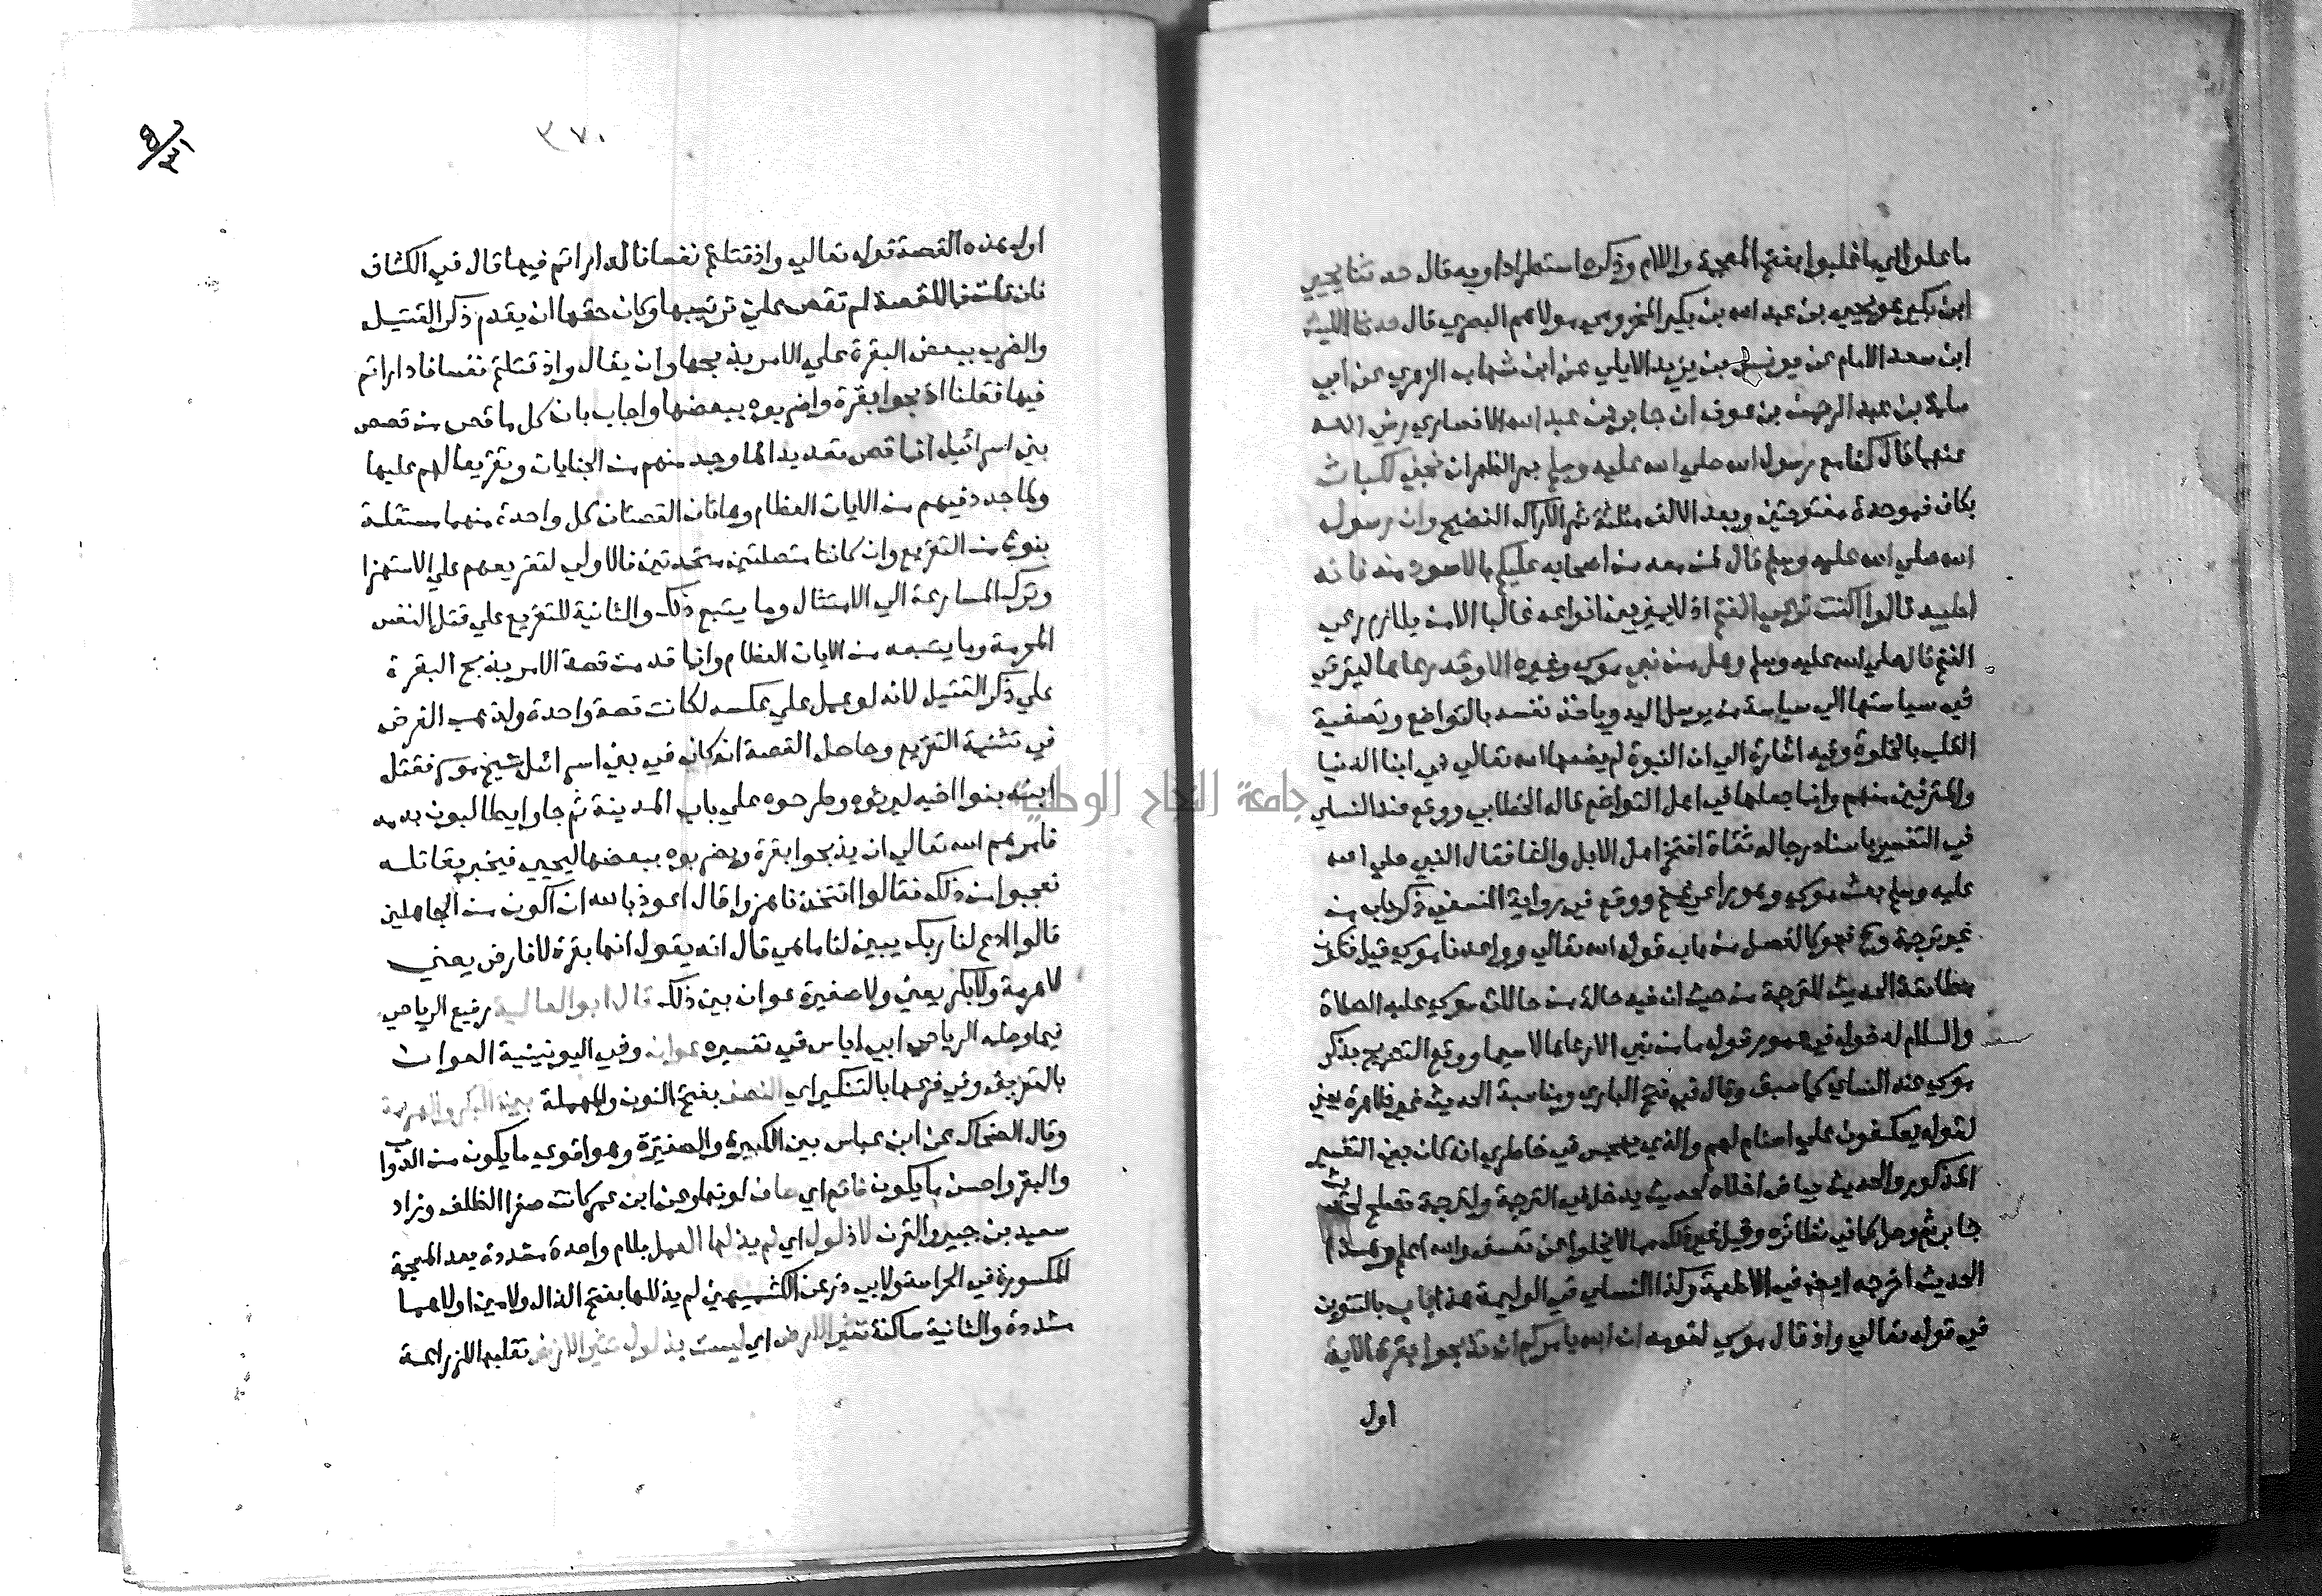 ما علوا اي ما غلبوا بفتح المعجمة واللام وذكره استطرادا وبه قال حدثنا يحيي
ابن بكير هو يحيي بن عبد الله بن بكير المخزومي مولاهم البصري قال حدثنا الليث
ابن سعد الامام عن يونس بن يزيد الايلي عن ابن شهاب الزهري عن ابي
سلمة بن عبد الرحمن بن عوف ان جابر بن عبد الله الانصاري رضي الله
عنهما قال كنا مع رسول الله صلي الله عليه وسلم بمر الظهران نجني الكباث
بكاف فموحدة مفتوحتين وبعد الالف مثلثة ثمر الاراك النضيج وان رسول
الله صلي الله عليه وسلم قال لمن معه من اصحابه عليكم بالاسود منه فانه
اطيبه قالوا اكنت ترعي الغنم اذ لا يميز بين انواعه غالبا الا من يلازم رعي
الغنم قال صلي الله عليه وسلم وهل من نبي موسي وغيره الا وقد رعاها ليترقي
فيه سياستها الي سياسة من يرسل اليه وياخذ نفسه بالتواضع وتصفية
القلب بالخلوة وفيه اشارة الي ان النبوة لم يضعها الله تعالي في ابنا الدنيا
والمترفين منهم وانما جعلها في اهل التواضع قاله الخطابي ووقع عند النساي
في التفسير باسناد رجاله ثقاة افتخر اهل الابل والغا فقال النبي صلي الله
عليه وسلم بعث موسي وهو راعي غنم ووقع في رواية النسفي ذكر باب من
غير ترجمة وح فهو كالفصل من باب قول الله تعالي وواعدنا موسي قيل فتكون
مطابقة الحديث للترجمة من حيث ان فيه حالة من حالات موسي عليه الصلاة
والسلام لدخوله في عموم قوله ما من نبي الا رعاها لا سيما ووقع التصريح بذكر
موسي عند النساي كما سبق وقال في فتح الباري ومناسبة الحديث غير ظاهرة يعني
لقوله يعكفون علي اصنام لهم والذي يهجس في خاطري انه كان بين التفسير
المذكور والحديث بياض اخلاه لحديث يدخل في الترجمة ولترجمة تصلح لحديث
جابر ثم وصل كما في نظائره وقيل غير ذلك مما لا يخلوا عن تعسف والله اعلم وهذا
الحديث اخرجه ايضا في الاطعمة وكذا النساي في الوليمة هذا باب بالتنوين
في قوله تعالي واذ قال موسي لقومه ان الله يامركم ان تذبحوا بقرة الاية
اول
٣٧٠
اول هذه القصة قوله تعالي واذ قتلتم نفسا فاداراتم فيها قال في الكشاف
فان قلت فما للقصة لم تقص علي ترتيبها وكان حقها ان يقدم ذكر القتيل
والضرب ببعض البقرة علي الامر بذبحها وان يقال واذ قتلتم نفسا فاداراتم
فيها فقلنا اذبحوا بقرة واضربوه ببعضها واجاب بان كل ما قص من قصص
بني اسرائيل انما قص تعديدا لما وجد منهم من الجنايات وتقريعا لهم عليها
ولما جدد فيهم من الايات العظام وهاتان القصتان كل واحدة منهما مستقلة
بنوع من التقريع وان كانتا متصلتين متحدتين فالاولي لتقريعهم علي الاستهزا
وترك المسارعة الي الامتثال وما يتبع ذلك والثانية للتقريع علي قتل النفس
المحرمة وما يتبعه من الايات العظام وانما قدمت قصة الامر بذبح البقرة
علي ذكر القتيل لانه لو عمل علي عكسه لكانت قصة واحدة ولذهب الغرض
في تثنية التقريع وحاصل القصة انه كان في بني اسرائيل شيخ موسر فقتل
ابنه بنوا اخيه ليرثوه وطرحوه علي باب المدينة ثم جاوا يطالبون بدمه
فامرهم الله تعالي ان يذبحوا بقرة ويضربوه ببعضها ليحيي فيخبر بقاتله
فعجبوا من ذلك فقالوا اتتخذنا هزوا قال اعوذ بالله ان اكون من الجاهلين
قالوا ادع لنا ربك يبين لنا ما هي قال انه يقول انها بقرة لا فارض يعني
لا هرمة ولا بكر يعني ولا صغيرة عوان بين ذلك قال ابو العالية رفيع الرياحي
فيما وصله الرياحي ابي اياس في تفسيره عوان وفي اليونينية العوان
بالتعريف وفي فرعها بالتنكير اي النصف بفتح النون والمهملة بين البكر والهرمة
وقال الضحاك عن ابن عباس بين الكبيرة والصغيرة وهو اقوي ما يكون من الدواب
والبقر واحسن ما يكون فاقع اي صاف لونها وعن ابن عمر كانت صفرا الظلف وزاد
سعيد بن جبير والقرن لا ذلول اي لم يذلها العمل بلام واحدة مشددة بعد المعجمة
المكسورة في الحراسة ولابي ذر عن الكشميهني لم يذللها بفتح الذال ولامين اولاهما
مشددة والثانية ساكنة تثير الارض اي ليست بذلول تثير الارض تقلبها للزراعة
جامعة النجاح الوطنية